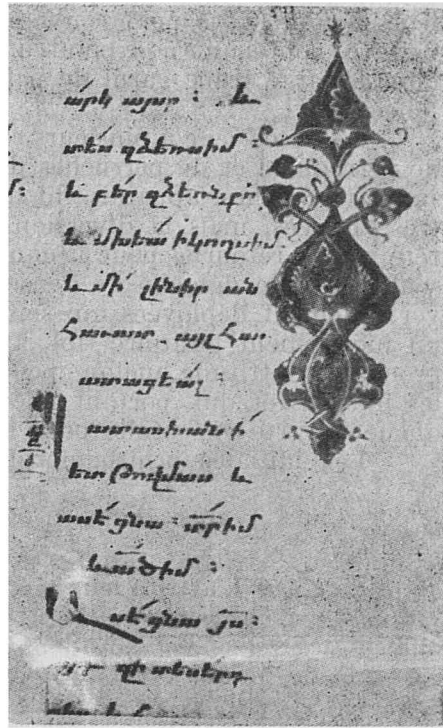 արկ այսր ։ և
տես զձեռս իմ ։
և բեր զձեռն քո
և մխեա ի կողս իմ
և մի լինիր ան
հաւատ . այլ հաւ
ատացեալ ։
ատասխանի
ետ Թովմաս և
ասէ ցնա ։ տր իմ
և ած իմ ։
Ասէ ցնա յս ։
զի տեսեր